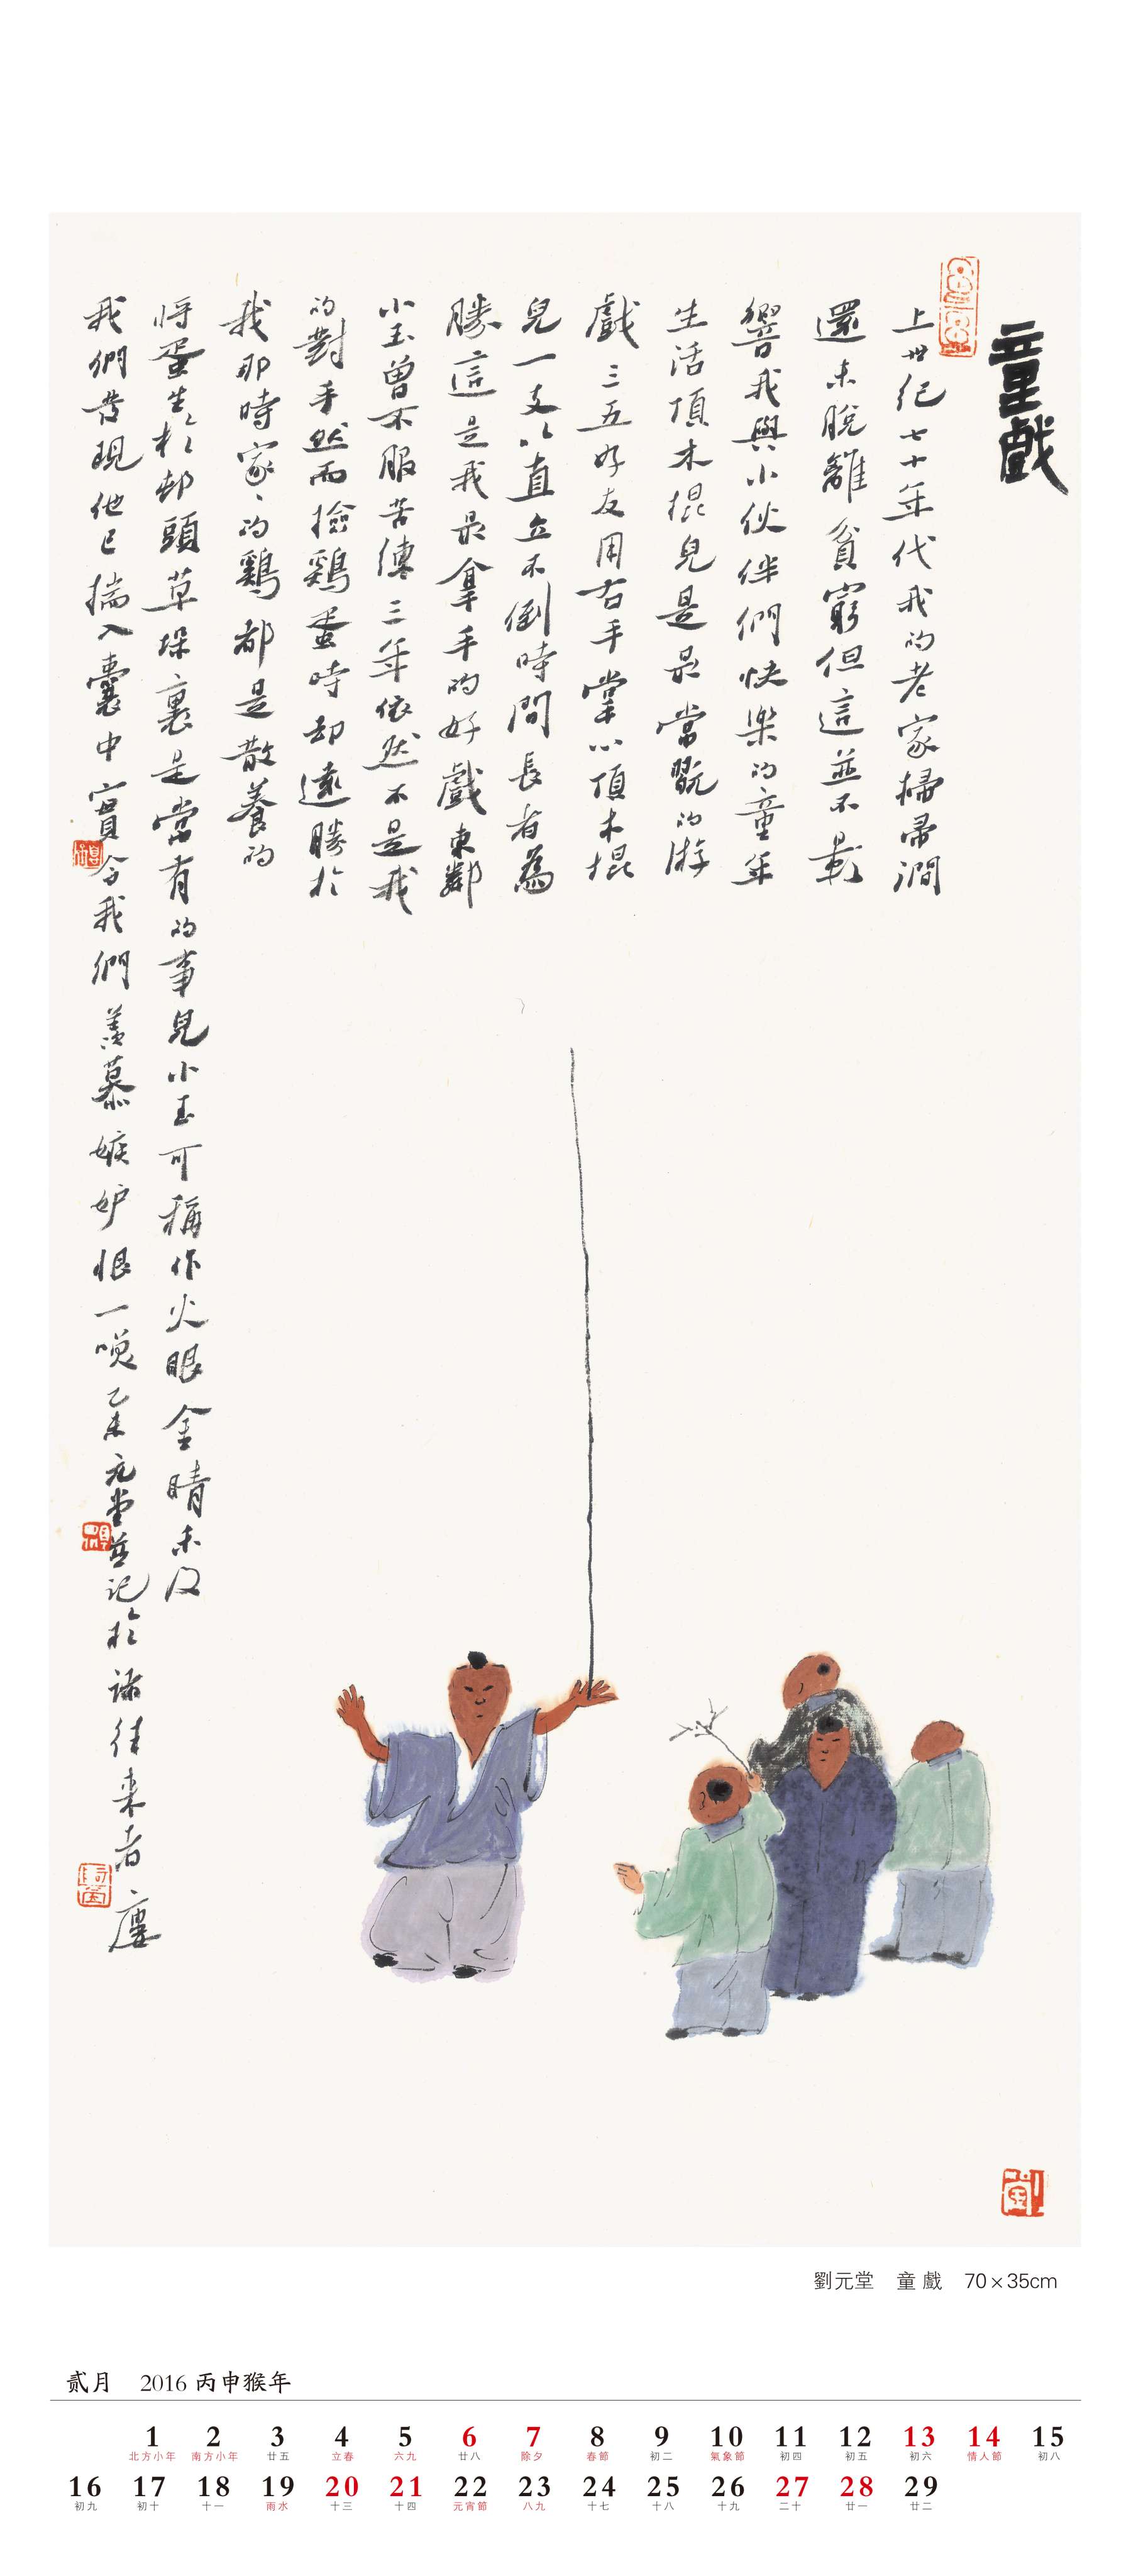 童戲
上世纪七十年代我的老家掃帚澗
還未脫離貧窮但這並不影
響我與小伙伴們快樂的童年
生活頂木棍兒是最常翫的游
戲三五好友用右手掌心頂木棍
兒一支以直立不倒時間長者為
勝這是我最拿手的好戲東鄰
小玉曾不服苦練三年依然不是我
的對手然而撿鷄蛋時却遠勝於
我那時家家的鷄都是散養的
將蛋生於邨頭草垛裏是常有的事兒小玉可稱作火眼金睛未及
我們發現他已揣入囊中實令我們羨慕嫉妒恨一嘆乙未元堂並記於諸往來者廔
劉元堂 童戲 70×35cm
贰月 2016 丙申猴年
1 2 3 4 5 6 7 8 9 10 11 12 13 14 15
北方小年 南方小年 廿五 立春 六九 廿八 除夕 春節 初二 氣象節 初四 初五 初六 情人節 初八
16 17 18 19 20 21 22 23 24 25 26 27 28 29
初九 初十 十一 雨水 十三 十四 元宵節 八九 十七 十八 十九 二十 廿一 廿二